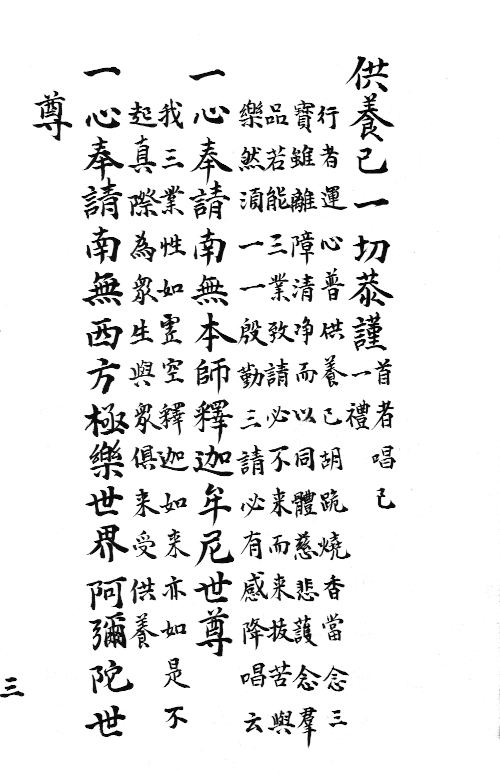 供養已一切恭謹
首者唱已
一禮
行者運心普供養已胡跪燒香當念三
寶雖離障清淨而以同體慈悲護念羣
品若能三業致請必不来而来拔苦與
樂然須一一殷勤三請必有感降唱云
一心奉請南無本師釋迦牟尼世尊
我三業性如虛空釋迦如来亦如是不
起真際為衆生與衆俱来受供養
一心奉請南無西方極樂世界阿彌陀世
尊
三